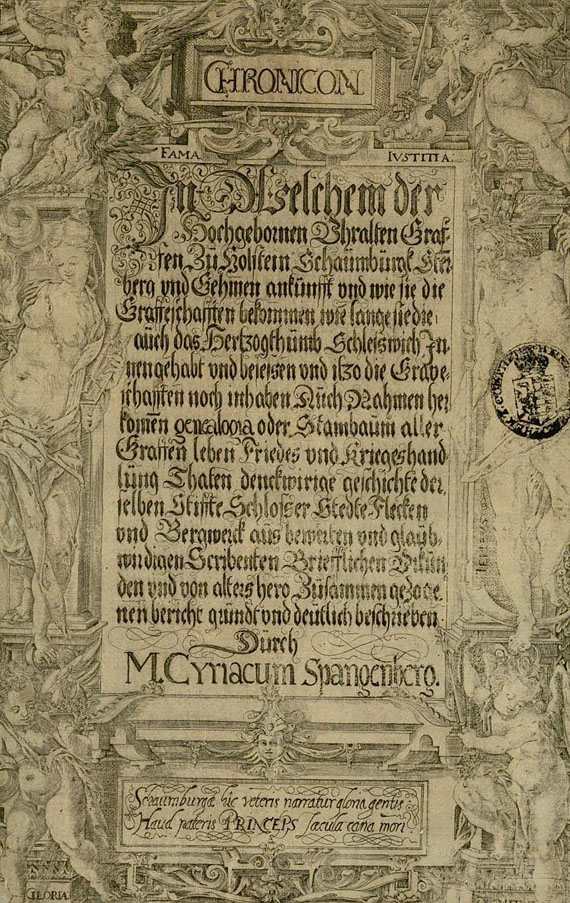 CHRONICON
FAMA IVSTITIA
In Welchem der
Hochgebornen Vhralten Graf-
fen Zu Holstein Schaumburgk Ster-
berg vnd Gehmen ankunfft vnd wie sie die
Graffeschafften bekommen wie lange sie die
auch das Hertzogthumb Schleiswich In-
nengehabt vnd besessen vnd itzo die Grave-
schafften noch inhaben Auch Nahmen her
komen genealogia oder Stambaum aller
Graffen leben Friedes vnd Krieges hand
lung Thaten denckwirige geschichte der,
selben Stiffte Schlosser Stedte Flecken
vnd Bergwerck aus bewerten vnd glaub-
wirdigen Scribenten Briefflichen Vrkun
den vnd von alters hero Zusammen gezoge,
nen bericht grundt vnd deutlich beschrieben
Durch
M. Cyriacum Spangenberg.
Schaumburgæ hic veteris narratur gloria gentis
Haud pateris PRINCEPS sæcula cana mori
GLORIA